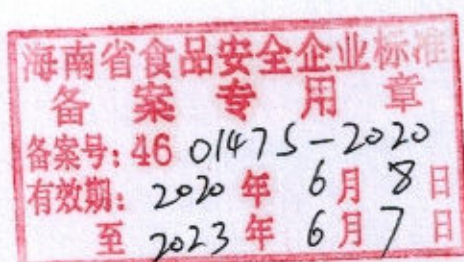 海南省食品安全企业标准
备案专用章
备案号：46 01475-2020
有效期：2020年6月8日
至2023年6月7日